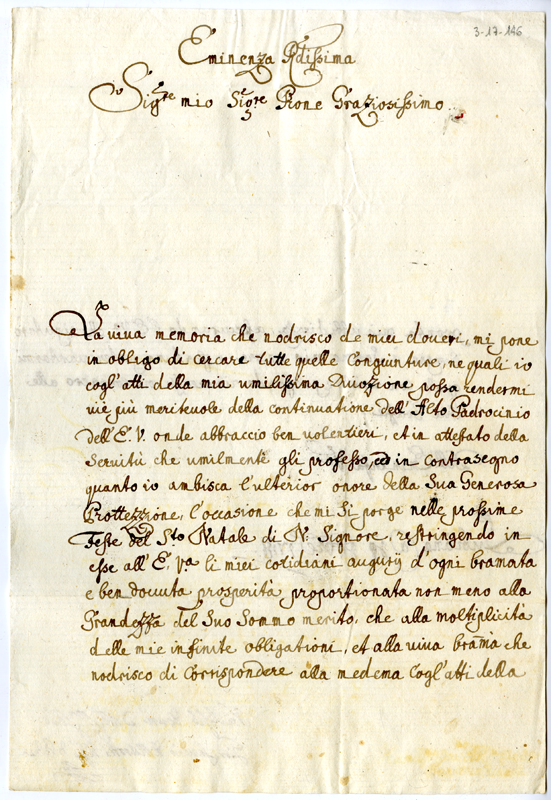 3-17-146
Eminenza Rdissima
Sigre mio Sigre Prone Graziosissimo
La viva memoria che nodrisco de miei doveri, mi pone
in obligo di cercare tutte quelle Congiunture, ne quali io
cogl' atti della mia umilissima Divozzione possa rendermi
vie più meritevole della continuatione dell' Alto Padrocinio
dell' E. V. onde abbraccio ben volentieri, et in attestato della
Servitù che umilmente gli professo, ed in contrasegno
quanto io ambisca l'ulterior onore della Sua Generosa
Prottezzione, l'occasione che mi Si porge nelle prossime
Feste del Sto Natale di N. Signore, restringendo in
esse all' E. Va li miei cotidiani augurij d'ogni bramata
e ben dovuta prosperità proportionata non meno alla
Grandezza del Suo Sommo merito, che alla moltiplicità
delle mie infinite obligationi, et alla viva brama che
nodrisco di Corrispondere alla medema cogl' atti della